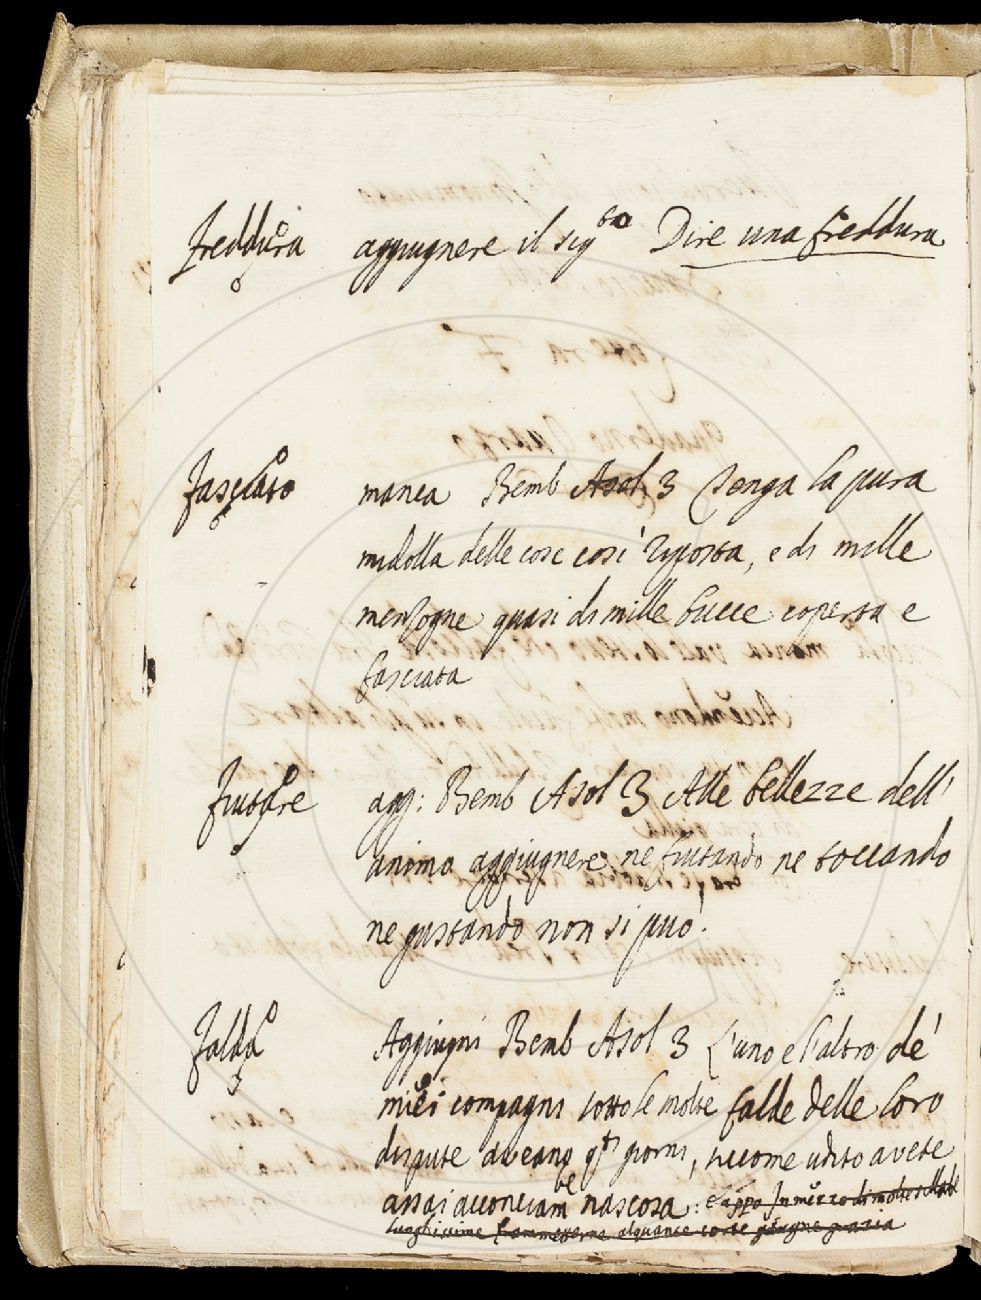 Freddura aggiugnere il sig.to Dire una freddura
Fasciato manca Bemb Asol 3 senza la pura
midolla delle cose così riposta, e di mille
menzogne quasi di mille bucce coperta e
fasciata
Fiutare agg: Bemb Asol 3 Alle bellezze dell'
animo aggiugnere ne fiutando ne toccando
ne gustando non si può.
Falda Aggiugni Bemb Asol 3 L'uno e l'altro de'
miei compagni sotto le molte falde delle loro
dispute aveano qti giorni, siccome udito avete
assai acconciamte nascosa: e appo In mezzo di molte
luoghissime frammetterne alquante corte giugne grazia